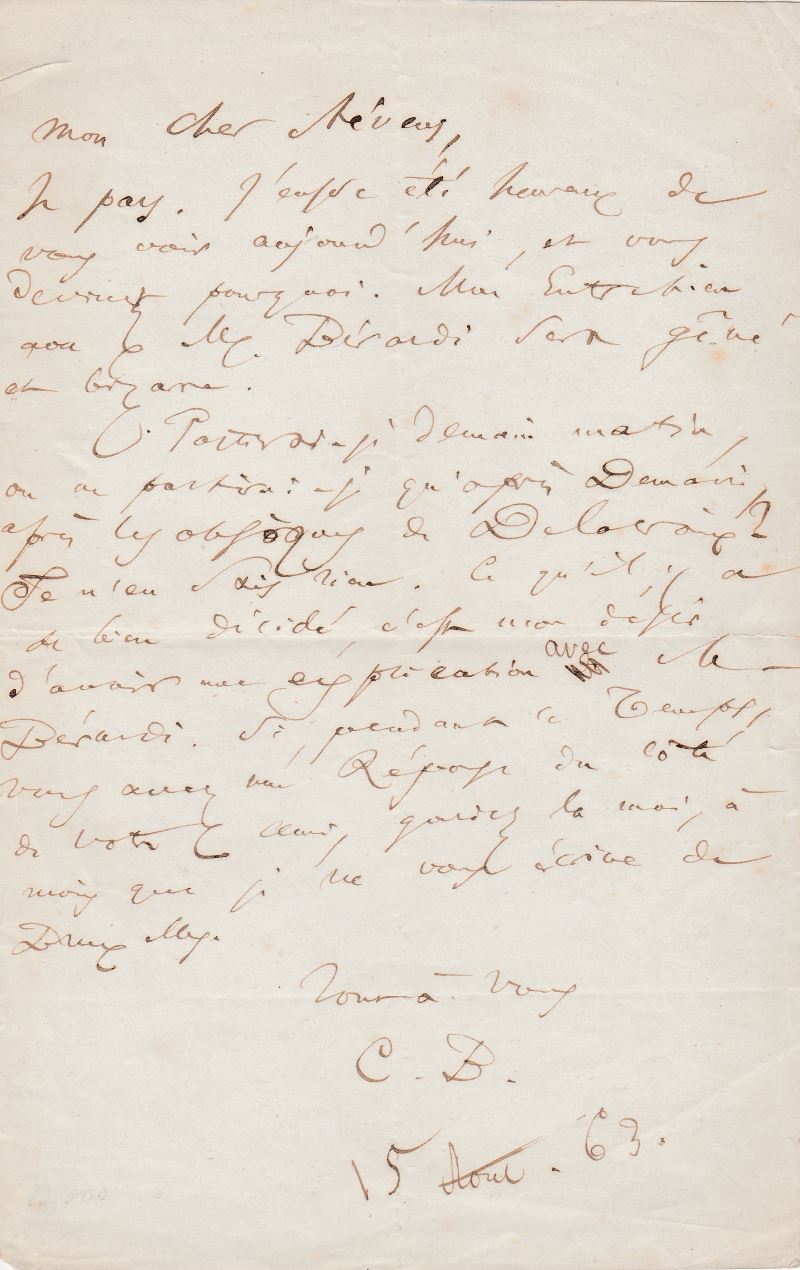 Mon cher Stévens,
Je pars. J'eusse été heureux de
vous voir aujourd'hui, et vous
devinez pourquoi. Mon entretien
avec M. Bérardi sera gêné
et bizarre.
Partirai-je demain matin,
ou ne partirai-je qu'après Demain,
après les obsèques de Delacroix?
Je n'en sais rien. Ce qu'il y a
de bien décidé, c'est mon désir
d'avoir une explication avec M.
Bérardi. Si, pendant ce temps,
vous avez une Réponse du côté
de votre ami, gardez la moi, à
moins que je ne vous écrive de
Bruxelles.
Tout à vous
C. B.
15 Août. 63.